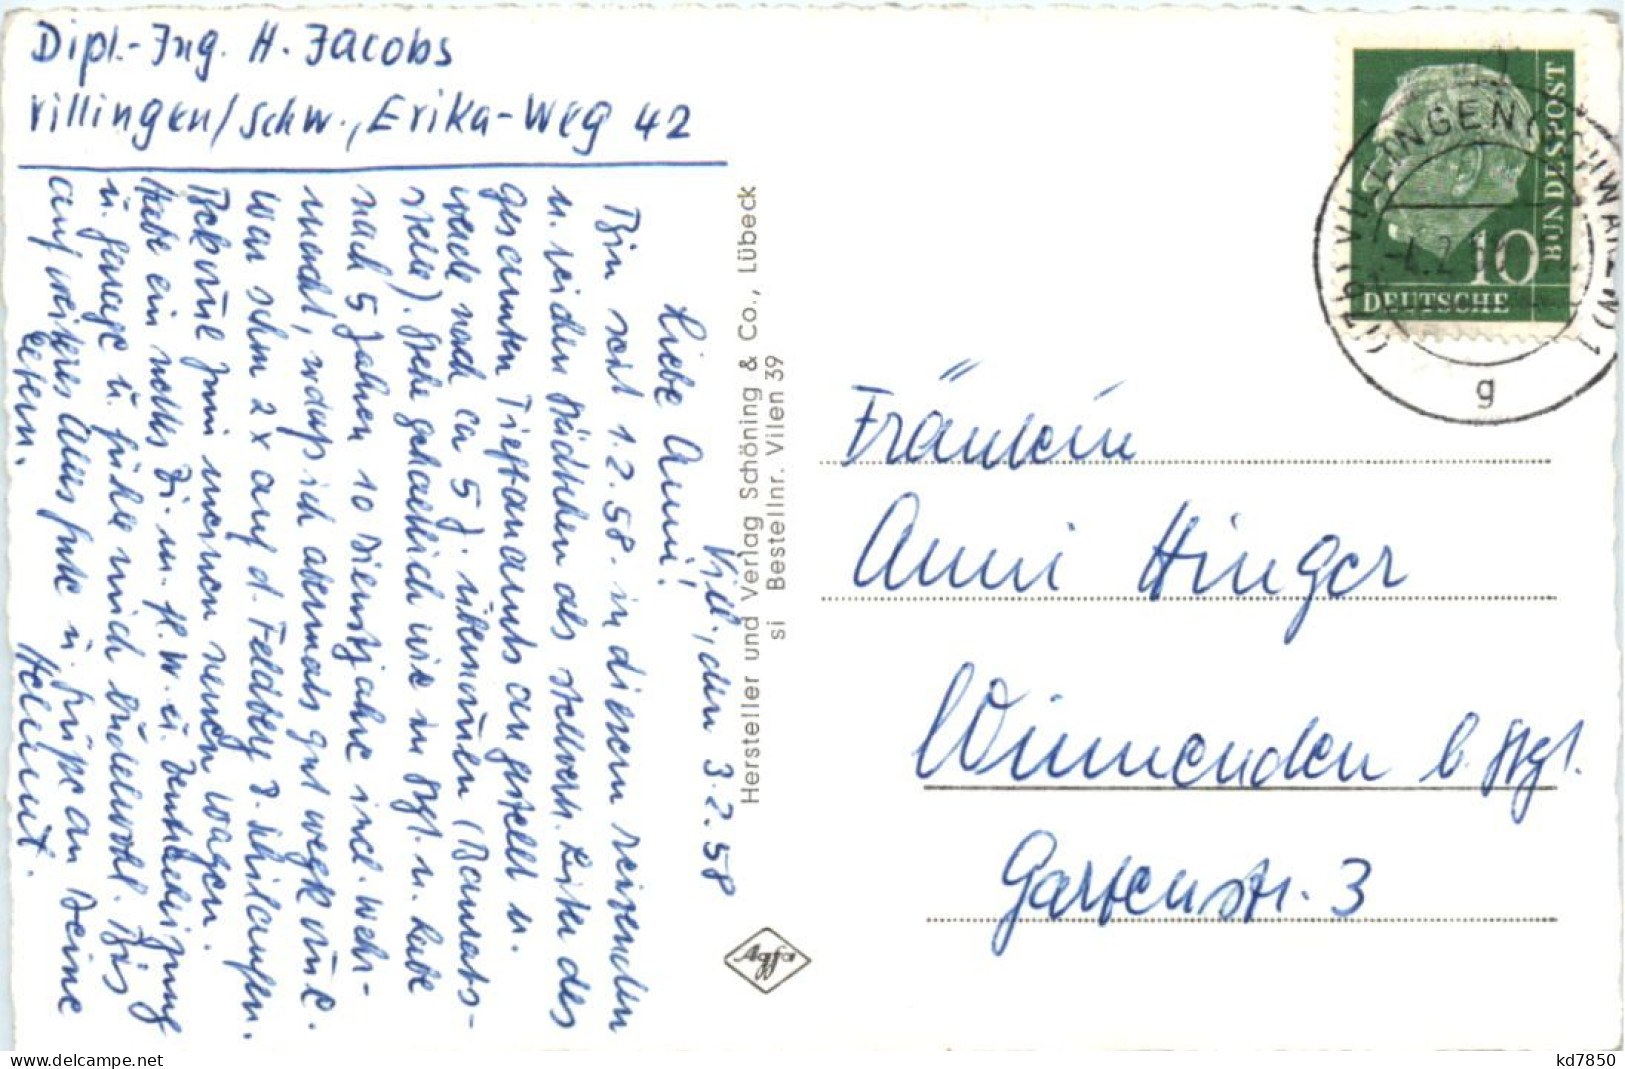 Dipl.-Ing. H. Jacobs
Villingen/Schw., Erika-Weg 42
Vill., den 3.2.58
Liebe Anni!
Bin seit 1.2.58. in diesem reizenden
u. reichen Städtchen als stellvertr. Leiter des
gesamten Tiefbauamts angestellt u.
werde nach ca 5 J. übernommen (Baurats-
stelle). Stehe gehaltlich wie in Stgt. u. habe
nach 5 Jahren 10 Dienstjahre incl. Wehr-
macht, sodass ich abermals gut wegkomme.
War schon 2x auf d. Feldberg z. Skilaufen.
Bekomme Juni meinen neuen Wagen.
Habe ein nettes Zi. m. fl. W. u. Zentralheizung
u. Garage u. fühle mich pudelwohl. Bis
auf weiteres Alles Gute u. Grüsse an Deine
Eltern.
Helmut.
Hersteller und Verlag Schöning & Co., Lübeck
si Bestellnr. Vilen 39
Agfa
DEUTSCHE
BUNDESPOST
10
(17b) VILLINGEN (SCHWARZW) 1
-4.2.58
g
Fräulein
Anni Hinger
Winnenden b. Stgt.
Gartenstr. 3
kd7850